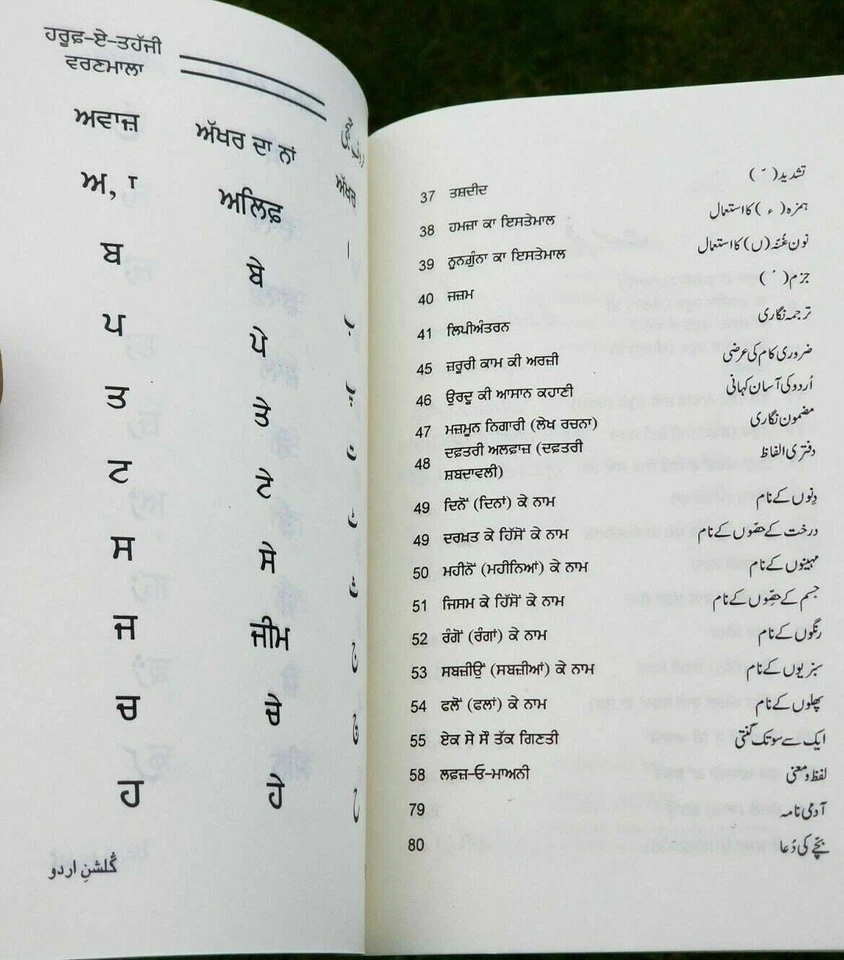 ਹਰੂਫ਼-ਏ-ਤਹੱਜੀ
ਵਰਣਮਾਲਾ
ਅਵਾਜ਼ ਅੱਖਰ ਦਾ ਨਾਂ ਅੱਖਰ
ਅ, ਾ ਅਲਿਫ਼ ا
ਬ ਬੇ ب
ਪ ਪੇ پ
ਤ ਤੇ ت
ਟ ਟੇ ٹ
ਸ ਸੇ ث
ਜ ਜੀਮ ج
ਚ ਚੇ چ
ਹ ਹੇ ح
گلشنِ اردو
37 ਤਸ਼ਦੀਦ تشدید ( ّ )
38 ਹਮਜ਼ਾ ਕਾ ਇਸਤੇਮਾਲ ہمزہ ( ء ) کا استعمال
39 ਨੂਨਗੁੰਨਾ ਕਾ ਇਸਤੇਮਾਲ نون غُنّہ (ں) کا استعمال
40 ਜਜ਼ਮ جزم ( ْ )
41 ਲਿਪੀਅੰਤਰਨ ترجمہ نگاری
45 ਜ਼ਰੂਰੀ ਕਾਮ ਕੀ ਅਰਜ਼ੀ ضروری کام کی عرضی
46 ਉਰਦੂ ਕੀ ਆਸਾਨ ਕਹਾਣੀ اُردو کی آسان کہانی
47 ਮਜ਼ਮੂਨ ਨਿਗਾਰੀ (ਲੇਖ ਰਚਨਾ) مضمون نگاری
48 ਦਫ਼ਤਰੀ ਅਲਫਾਜ਼ (ਦਫ਼ਤਰੀ دفتری الفاظ
ਸ਼ਬਦਾਵਲੀ)
49 ਦਿਨੋਂ (ਦਿਨਾਂ) ਕੇ ਨਾਮ دِنوں کے نام
49 ਦਰਖ਼ਤ ਕੇ ਹਿੱਸੋਂ ਕੇ ਨਾਮ درخت کے حصّوں کے نام
50 ਮਹੀਨੋਂ (ਮਹੀਨਿਆਂ) ਕੇ ਨਾਮ مہینوں کے نام
51 ਜਿਸਮ ਕੇ ਹਿੱਸੋਂ ਕੇ ਨਾਮ جسم کے حِصّوں کے نام
52 ਰੰਗੋਂ (ਰੰਗਾਂ) ਕੇ ਨਾਮ رنگوں کے نام
53 ਸਬਜ਼ੀਉਂ (ਸਬਜ਼ੀਆਂ) ਕੇ ਨਾਮ سبزیوں کے نام
54 ਫਲੋਂ (ਫਲਾਂ) ਕੇ ਨਾਮ پھلوں کے نام
55 ਏਕ ਸੇ ਸੌ ਤੱਕ ਗਿਣਤੀ ایک سے سو تک گنتی
58 ਲਫ਼ਜ਼-ਓ-ਮਾਅਨੀ لفظ و معنی
79 آدمی نامہ
80 بچّے کی دُعا